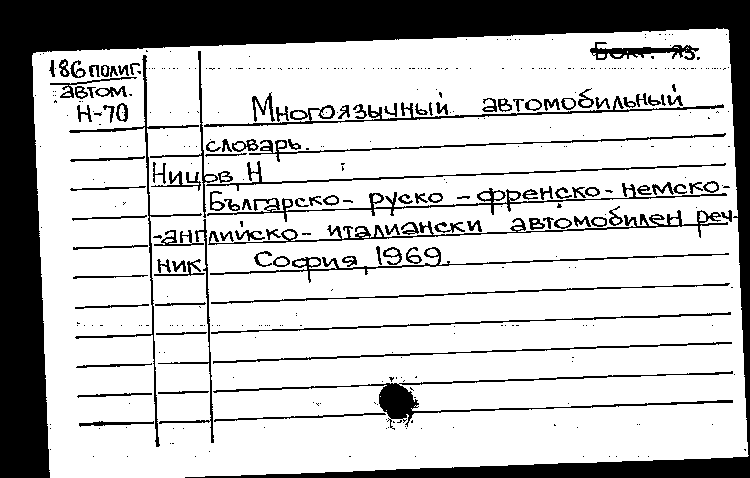 186 полиг.
автом.
Н-70
Болг. яз.
Многоязычный автомобильный
словарь.
Ницов, Н
Българско- руско - френско- немско-
-английско- италиански автомобилен реч-
ник. София, 1969.